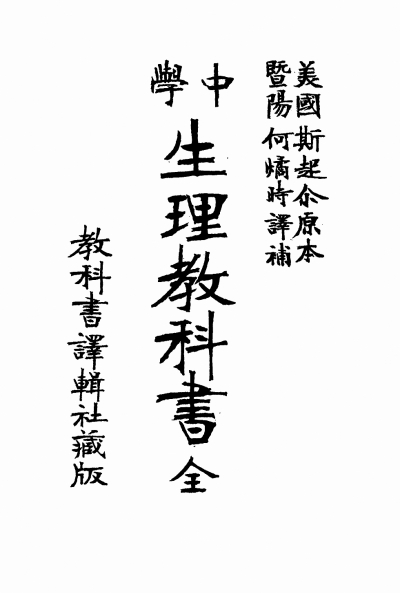 美國斯起爾原本
暨陽何燏時譯補
中學
生理教科書全
教科書譯輯社藏版